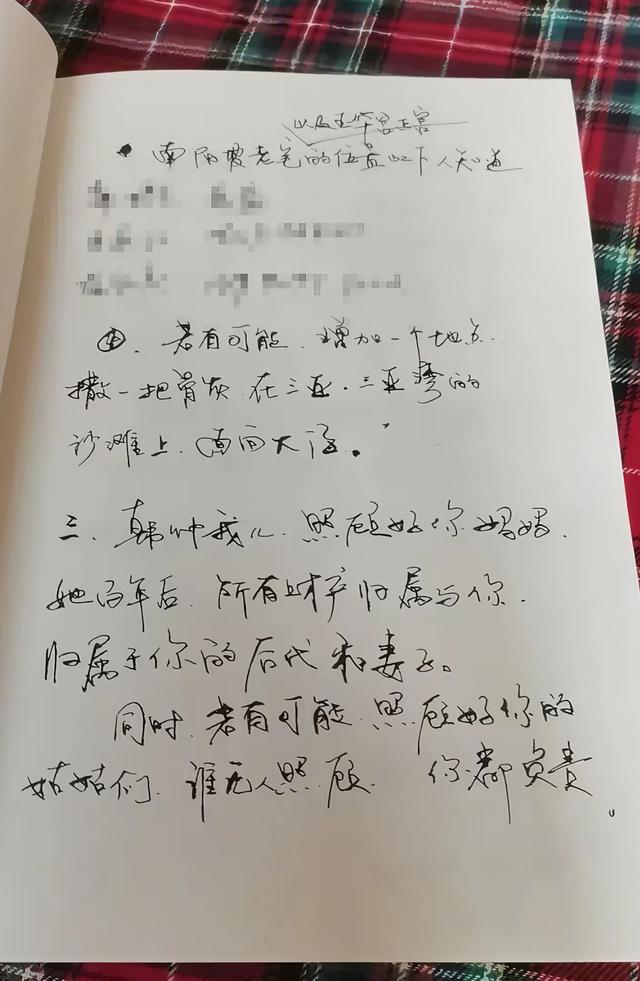 以及玉华宫正宫
南阳坡老宅的位置以下人知道
④. 若有可能. 增加一个地点.
撒一把骨灰在三亚.三亚湾的
沙滩上.面向大海。
三、韩帅我儿.照顾好你妈妈.
她百年后.所有财产归属与你.
归属于你的后代和妻子。
同时.若有可能.照顾好你的
姑姑们.谁无人照顾. 你都负责